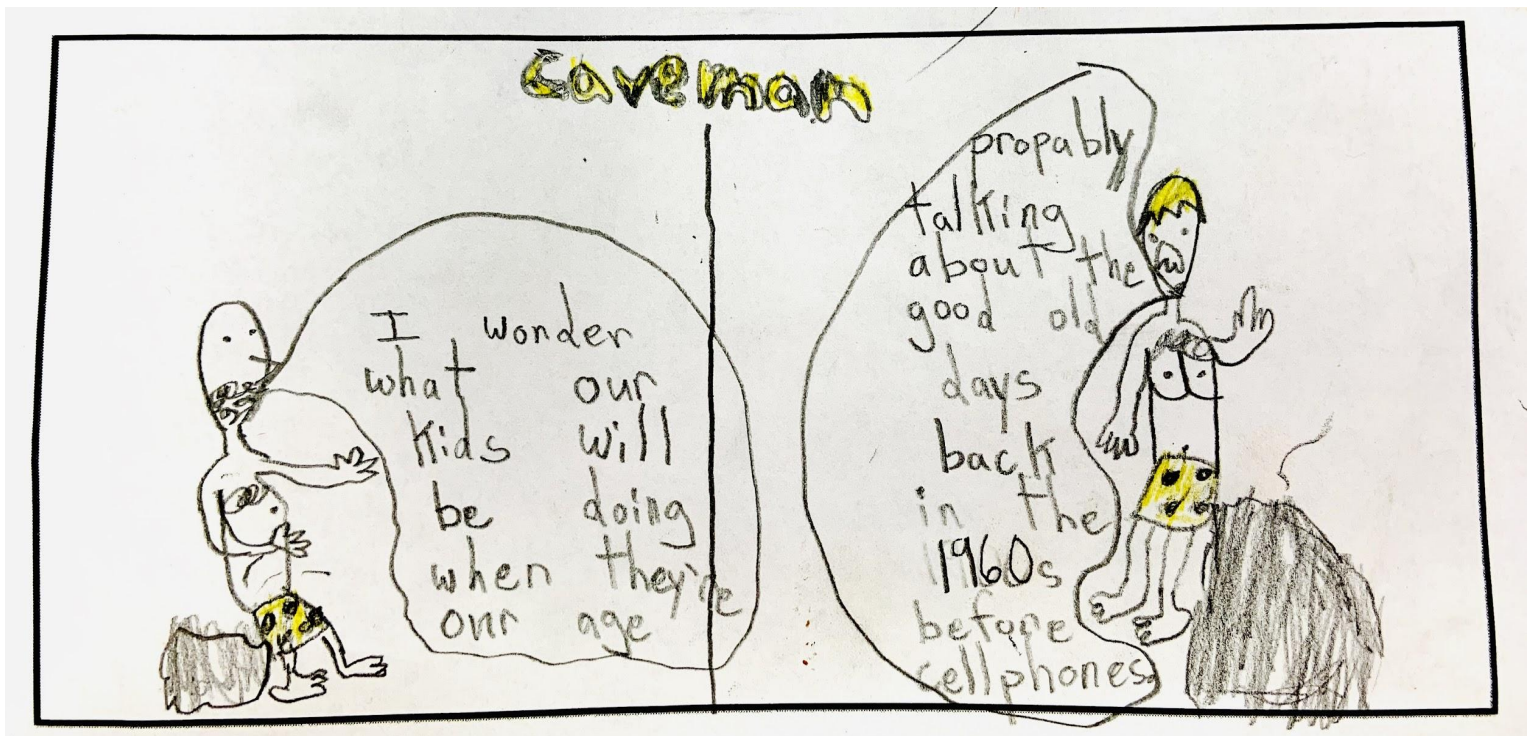 Caveman
I wonder
what our
kids will
be doing
when they're
our age
propably
talking
about the
good old
days
back
in the
1960s
before
cellphones.